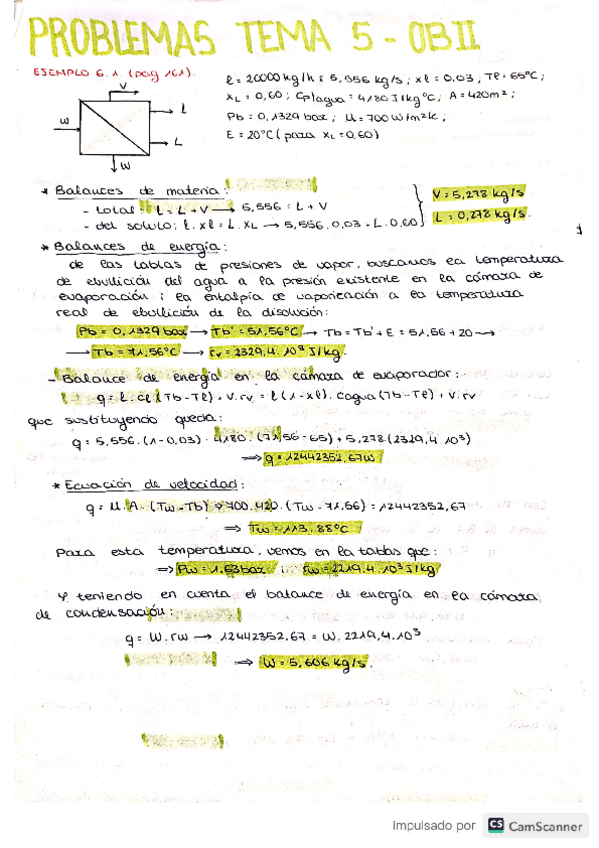 PROBLEMAS TEMA 5 - OBII
EJEMPLO 6.1. (pag 161)
V
W
l
L
W
l = 20000 kg/h = 5,556 kg/s ; xl = 0,03 , Tl = 65°C ;
XL = 0,60 ; Cp)agua = 4180 J/kg°C ; A = 420m² ;
Pb = 0,1329 bar ; U = 700 W/m²k ,
E = 20°C ( para XL = 0,60)
* Balances de materia:
- total: l = L + V → 5,556 = L + V
- del soluto: l. xl = L. XL → 5,556. 0,03 = L. 0,60
V = 5,278 kg/s
L = 0,278 kg/s.
* Balances de energía:
de las tablas de presiones de vapor, buscamos la temperatura
de ebullición del agua a la presión existente en la cámara de
evaporación ; la entalpía de vaporización a la temperatura
real de ebullición de la disolución:
Pb = 0,1329 bar → Tb' = 51,56°C → Tb = Tb' + E = 51,56 + 20 →
→ Tb = 71,56°C → rv = 2329,4. 10³ J/kg.
- Balance de energía en la cámara de evaporador:
q = l. cl (Tb - Tl) + V. rv = l (1 - xl). Cagua (Tb - Tl) + V. rv
que sustituyendo queda:
q = 5,556. (1 - 0,03) · 4180. (71,56 - 65) + 5,278 (2329,4. 10³)
⇒ q = 12442352,67W
* Ecuación de velocidad:
q = U. A. (Tw - Tb) → 700. 420. (Tw - 71,56) = 12442352,67
⇒ Tw = 113,88°C
Para esta temperatura, vemos en la tablas que:
⇒ Pw = 1.63bar ; rw = 2219,4. 10³ J/kg
Y teniendo en cuenta el balance de energía en la cámara
de condensación:
q = W. rw → 12442352,67 = W. 2219,4. 10³
⇒ W = 5,606 kg/s.
Impulsado por CS CamScanner